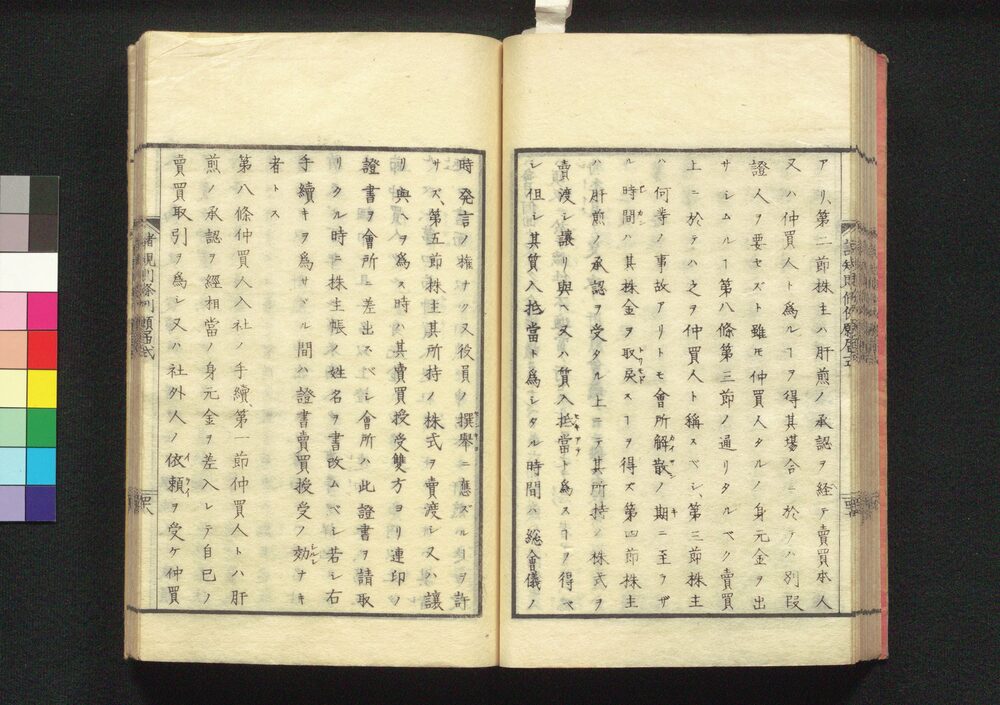 アリ、第二節株主ハ肝煎ノ承認ヲ経テ賣買本人
又ハ仲買人ト為ルヿヲ得其塲合ニ於テハ別段
證人ヲ要セズト雖モ仲買人タルノ身元金ヲ出
サシムルヿ第八條第三節ノ通リタルベク賣買
上ニ於テハ之ヲ仲買人ト稱スベシ、第三節株主
ハ何等ノ事故アリトモ會所解散ノ期ニ至ラザ
ル時間ハ其株金ヲ取戻スヿヲ得ズ第四節株主
ハ肝煎ノ承認ヲ受タル上ニテ其所持ノ株式ヲ
賣渡シ讓リ與ヘ又ハ質入抵當ト為スヿヲ得ベ
シ但シ其質入抵當ト為シタル時間ハ総會儀ノ
時發言ノ権ナク又役員ノ撰擧ニ應ズルヿヲ許
サズ、第五節株主其所持ノ株式ヲ賣渡シ又ハ讓
リ與ヘヲ為ス時ハ其賣買授受雙方ヨリ連印ノ
證書ヲ會所ニ差出スベシ會所ハ此證書ヲ請取
リタル時ニ株主帳ノ姓名ヲ書改ムベシ若シ右
手續キヲ為サヾル間ハ證書賣買授受ノ効ナキ
者トス
第八條仲買人入社ノ手續、第一節仲買人トハ肝
煎ノ承認ヲ經相當ノ身元金ヲ差入レテ自己ノ
賣買取引ヲ為シ又ハ社外人ノ依頼ヲ受ケ仲買